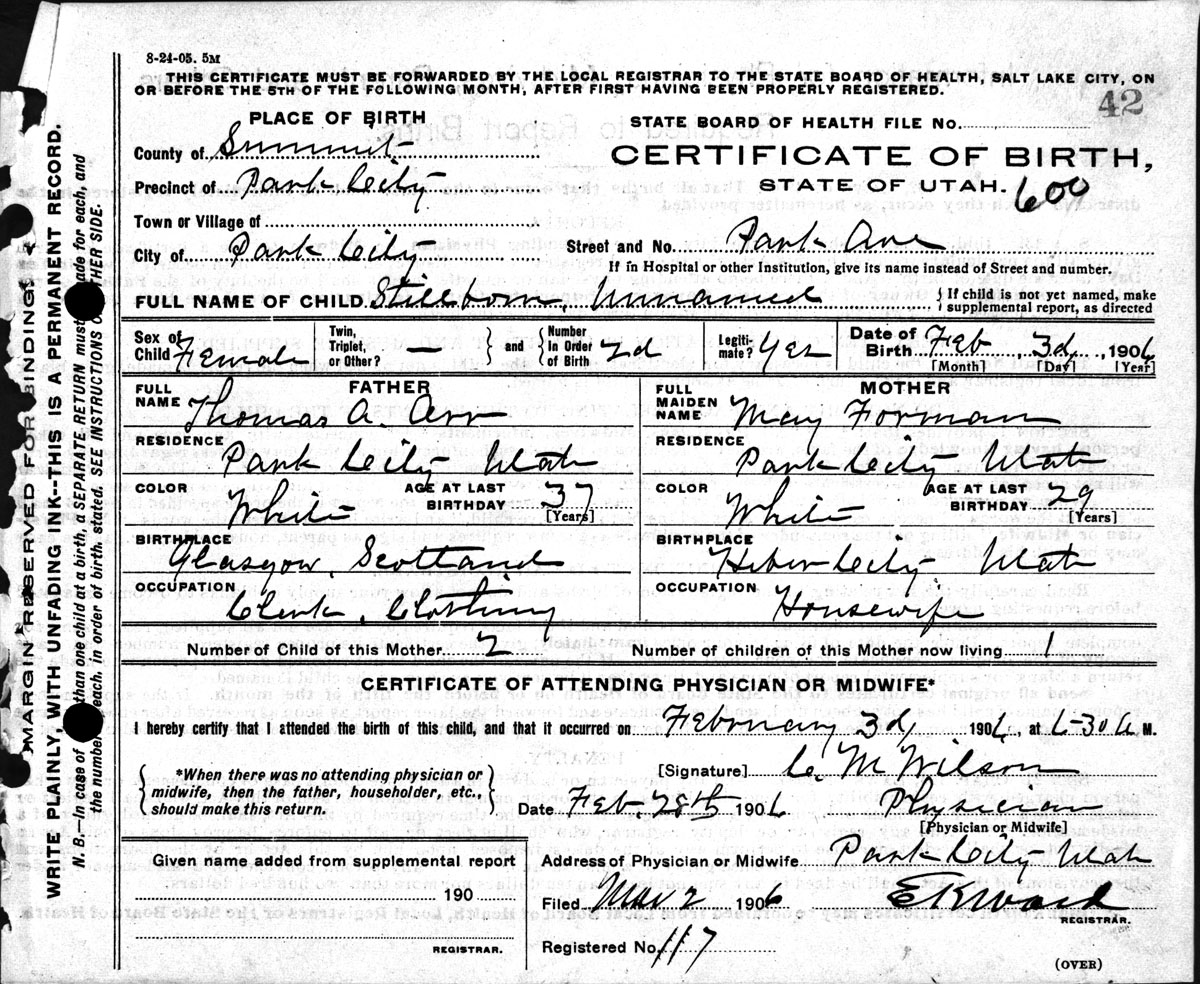 8-24-05. 5M
THIS CERTIFICATE MUST BE FORWARDED BY THE LOCAL REGISTRAR TO THE STATE BOARD OF HEALTH, SALT LAKE CITY, ON
OR BEFORE THE 5TH OF THE FOLLOWING MONTH, AFTER FIRST HAVING BEEN PROPERLY REGISTERED.
42
PLACE OF BIRTH
STATE BOARD OF HEALTH FILE No.
County of Summit
CERTIFICATE OF BIRTH,
Precinct of Park City
STATE OF UTAH. 600
Town or Village of
City of Park City Street and No. Park Ave
If in Hospital or other Institution, give its name instead of Street and number.
FULL NAME OF CHILD Stillborn, Unnamed { If child is not yet named, make
supplemental report, as directed
Sex of Child Female Twin, Triplet, or Other? — } and { Number In Order of Birth 2d Legiti-mate? Yes Date of Birth Feb, 3d, 1906
[Month] [Day] [Year]
FATHER
FULL NAME Thomas A. Orr
RESIDENCE
Park City Utah
COLOR White AGE AT LAST BIRTHDAY 37
[Years]
BIRTHPLACE
Glasgow, Scotland
OCCUPATION
Clerk, Clothing
MOTHER
FULL MAIDEN NAME May Forman
RESIDENCE
Park City Utah
COLOR White AGE AT LAST BIRTHDAY 29
[Years]
BIRTHPLACE
Heber City Utah
OCCUPATION
Housewife
Number of Child of this Mother 2 Number of children of this Mother now living 1
CERTIFICATE OF ATTENDING PHYSICIAN OR MIDWIFE*
I hereby certify that I attended the birth of this child, and that it occurred on February 3d, 1906, at 6-30 a M.
{ *When there was no attending physician or
midwife, then the father, householder, etc.,
should make this return. }
[Signature] C. M Wilson
Date Feb. 28th 1906 Physician
[Physician or Midwife]
Given name added from supplemental report
190
REGISTRAR.
Address of Physician or Midwife Park City Utah
Filed Mar 2 1906
REGISTRAR.
Registered No. 117
(OVER)
MARGIN RESERVED FOR BINDING
WRITE PLAINLY, WITH UNFADING INK--THIS IS A PERMANENT RECORD.
N. B.—In case of than one child at a birth, a SEPARATE RETURN must made for each, and
the number each, in order of birth, stated. SEE INSTRUCTIONS OTHER SIDE.